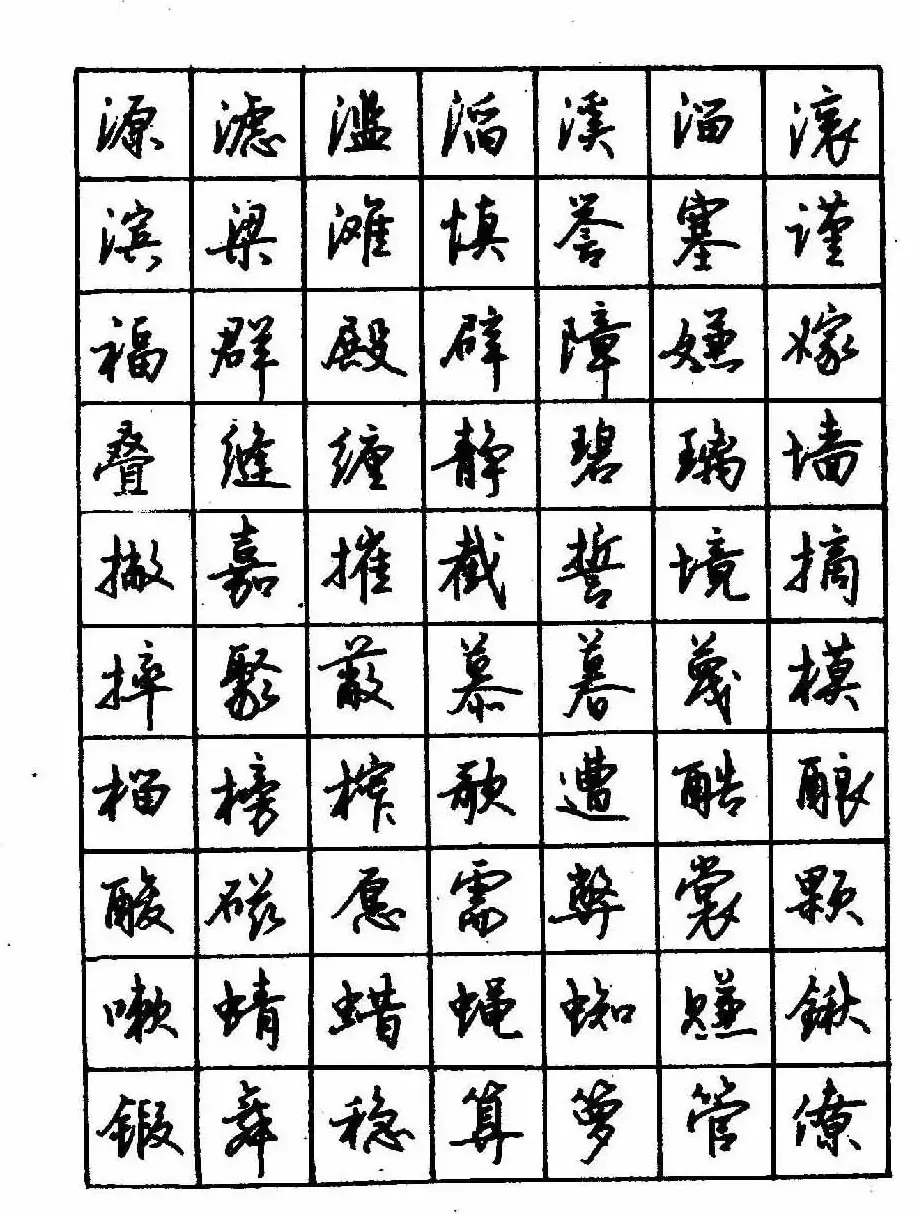 源滤滥滔溪溜滚
滨粱滩慎誉塞谨
福群殿辟障嫌嫁
叠缝缠静碧璃墙
撇嘉摧截誓境摘
摔聚蔽慕暮蔑模
榴榜榨歌遭酷酿
酸磁愿需弊裳颗
嗽蜻蜡蝇蜘赚锹
锻舞稳算箩管僚